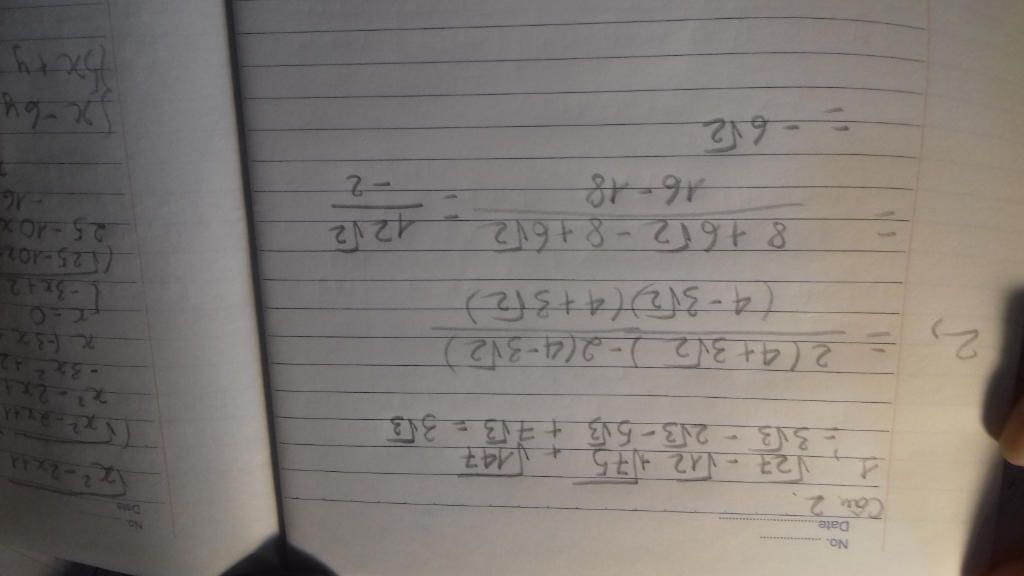 No.
Date
Câu 2.
1, √27 - √12 + √75 + √147
= 3√3 - 2√3 - 5√3 + 7√3 = 3√3
2,
= 2(4+3√2) - 2(4-3√2)
(4-3√2)(4+3√2)
= 8+6√2 - 8+6√2 = 12√2
16-18 -2
= -6√2
No.
Date
√x² - 2x+1
(√x² - 2x+1
x² - 2x+
-3x² + 2
x(-3x
x=0
[-3x+2
(√25-10x
25-10x
-16
{x - 6y
{5x + y